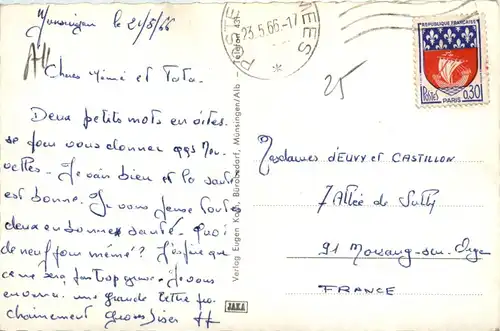 Munsingen le 21/5/66
Chers Mémé et Tata.
Deux petits mots en vites-
se pour vous donner qqs Nou-
velles. Je vais bien et la santé
est bonne. Je vous pense toutes
deux en bonne santé. Quoi
de neuf pour mémé? J'espère que
ce ne sera pas trop grave. Je vous
enverrai une grande lettre pro-
chainement Gros biser
Verlag Eugen Kopp, Bürobedarf, Münsingen/Alb - Telefon
JAKA
POSTE
MEES
23.5.66.-17
REPUBLIQUE FRANÇAISE
Postes 0,30
PARIS
25
Mesdames d'EUVY et CASTILLON
7 Allée de Sully
91 Morsang-sur-Orge
FRANCE